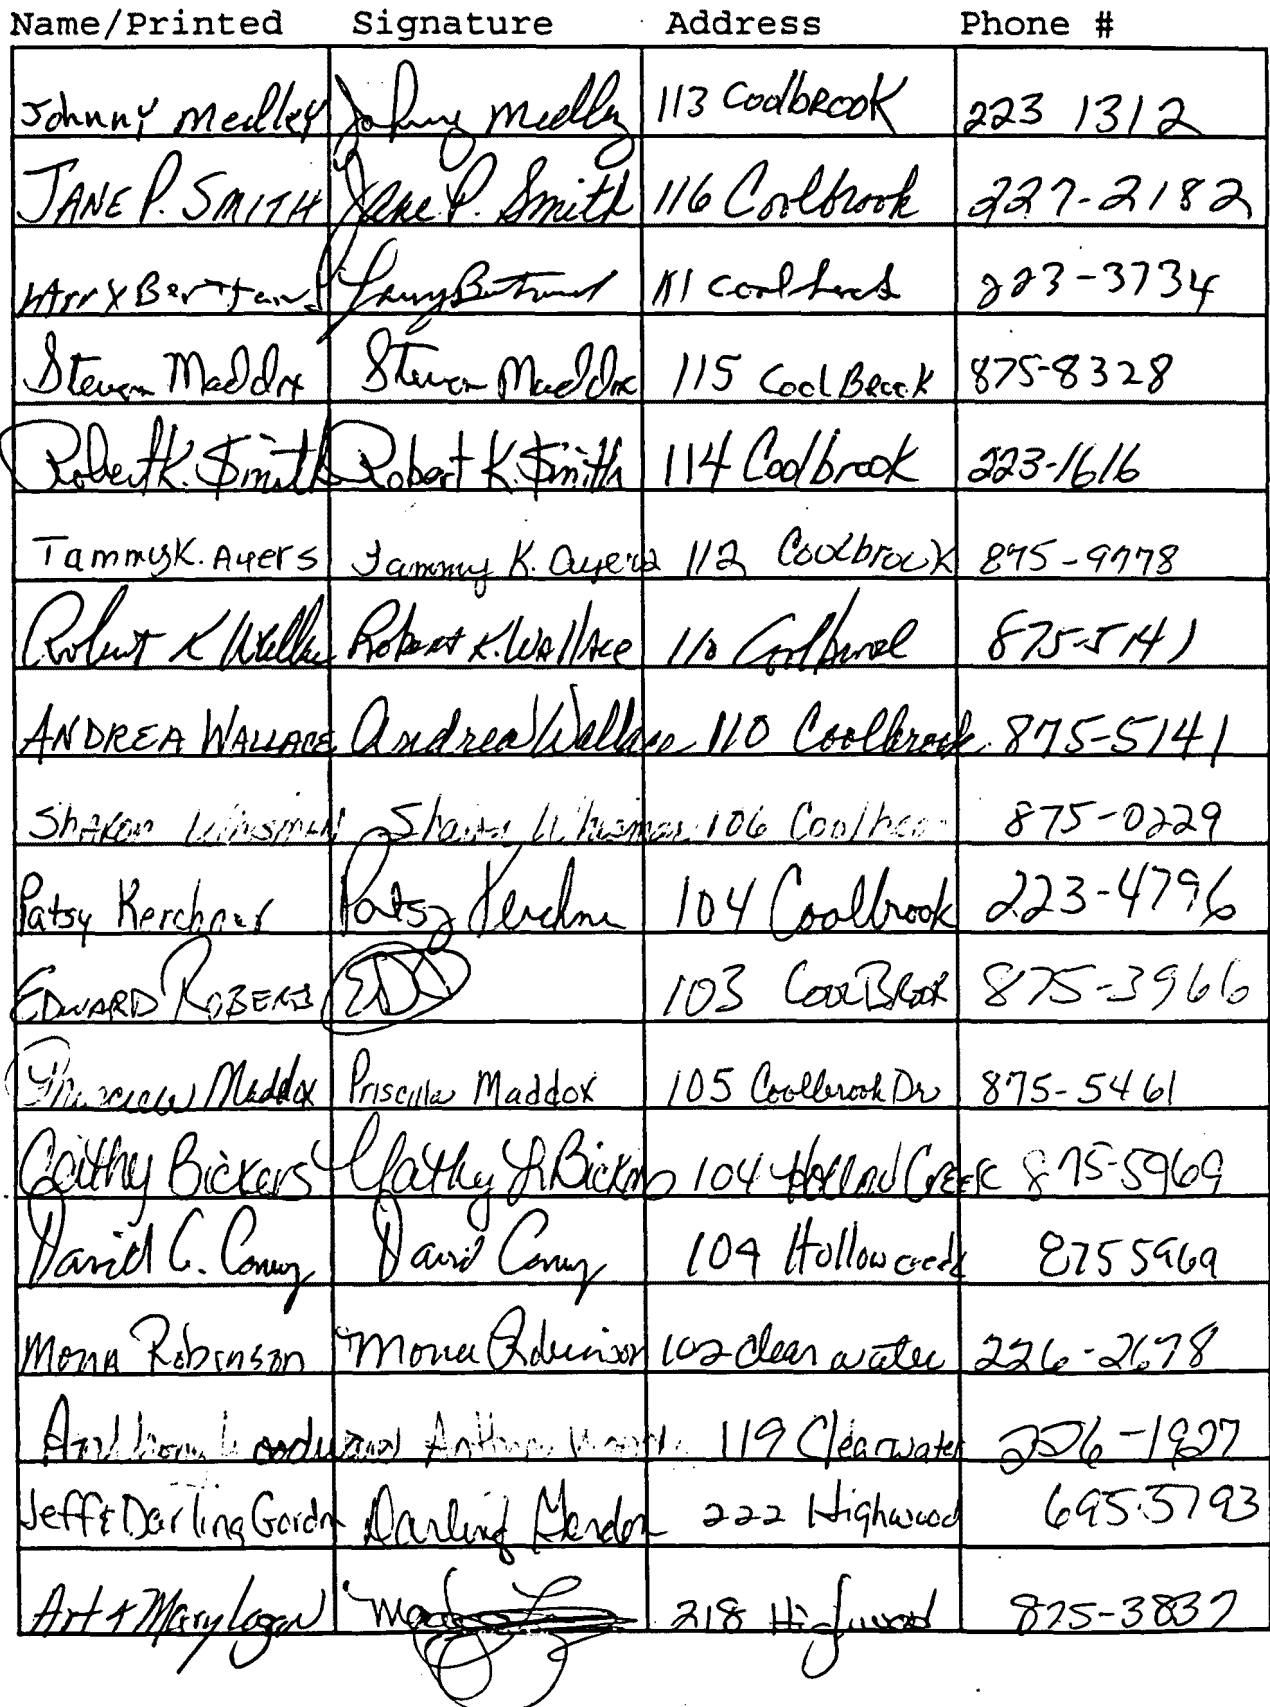 Name/Printed Signature Address Phone #
Johnny Medley Johnny Medley 113 CoolbrooK 223 1312
JANE P. SMITH Jane P. Smith 116 Coolbrook 227-2182
Larry Larry 223-3734
Steven Maddox Steven Maddox 115 Cool Brook 875-8328
Robert K. Smith Robert K. Smith 114 Coolbrook 223-1616
Tammy K. Ayers Tammy K. Ayers 112 Coolbrook 875-9778
Robert K Wallace Robert K. WAllAce 110 875-5141
ANDREA WALLACE Andrea Wallace 110 Coolbrook 875-5141
Sharon Whisman 106 875-0229
Patsy Kerchner Patsy Kerchner 104 Coolbrook 223-4796
EDWARD ROBERTS 103 CoolBrook 875-3966
Maddox Priscilla Maddox 105 Coolbrook Dr 875-5461
Cathy Bickers Cathy L. Bickers 104 Creek 875-5969
David C. David 104 Hollow creek 875 5969
MonA Robinson Mona Robinson 102 Clearwater 226-2678
Anthony Woodward Anthony 119 Clearwater 226-1927
Jeff & Darling Gordn Darling Gordon 222 Highwood 695-3793
Art + Mary Logan 218 Highwood 875-3837